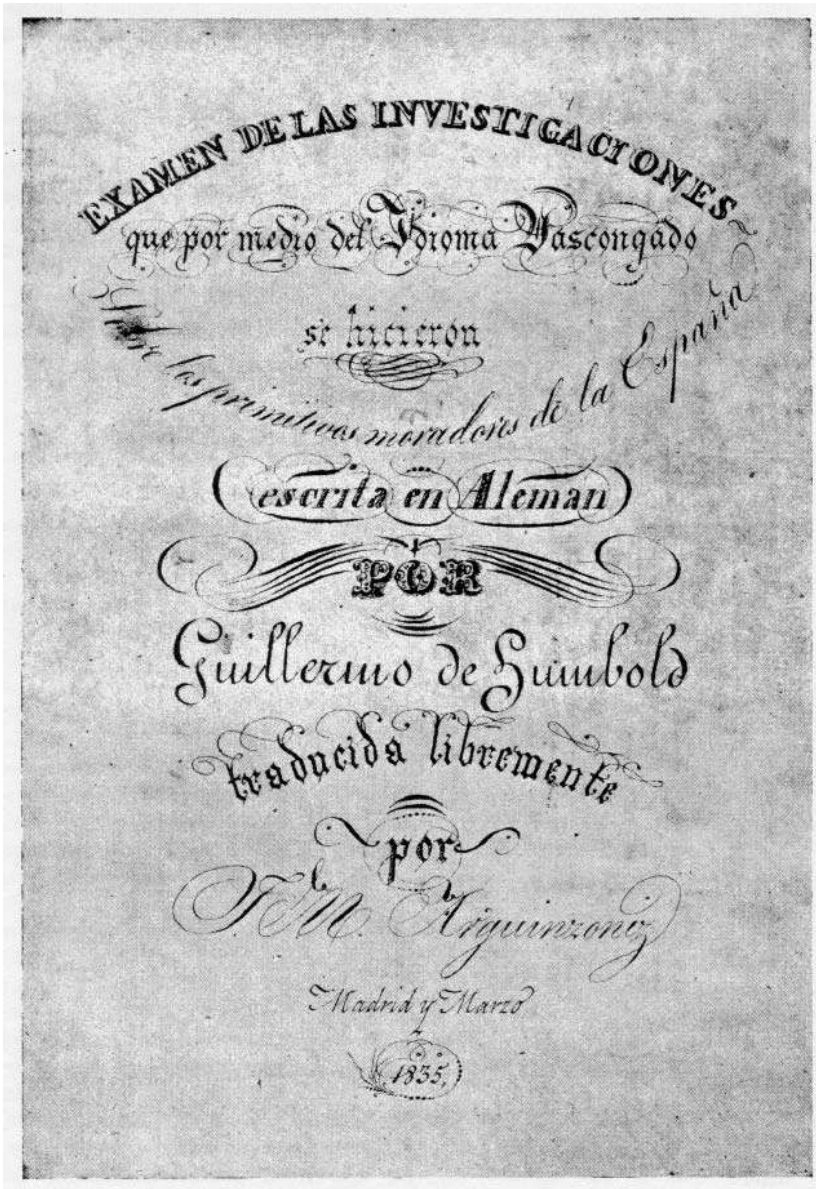 EXAMEN DE LAS INVESTIGACIONES
que por medio del Idioma Vascongado
se hicieron
Sobre los primitivos moradores de la España
escrita en Aleman
POR
Guillermo de Humbold
traducida libremente
por
F. M. Arguinzoniz
Madrid y Marzo
1835,